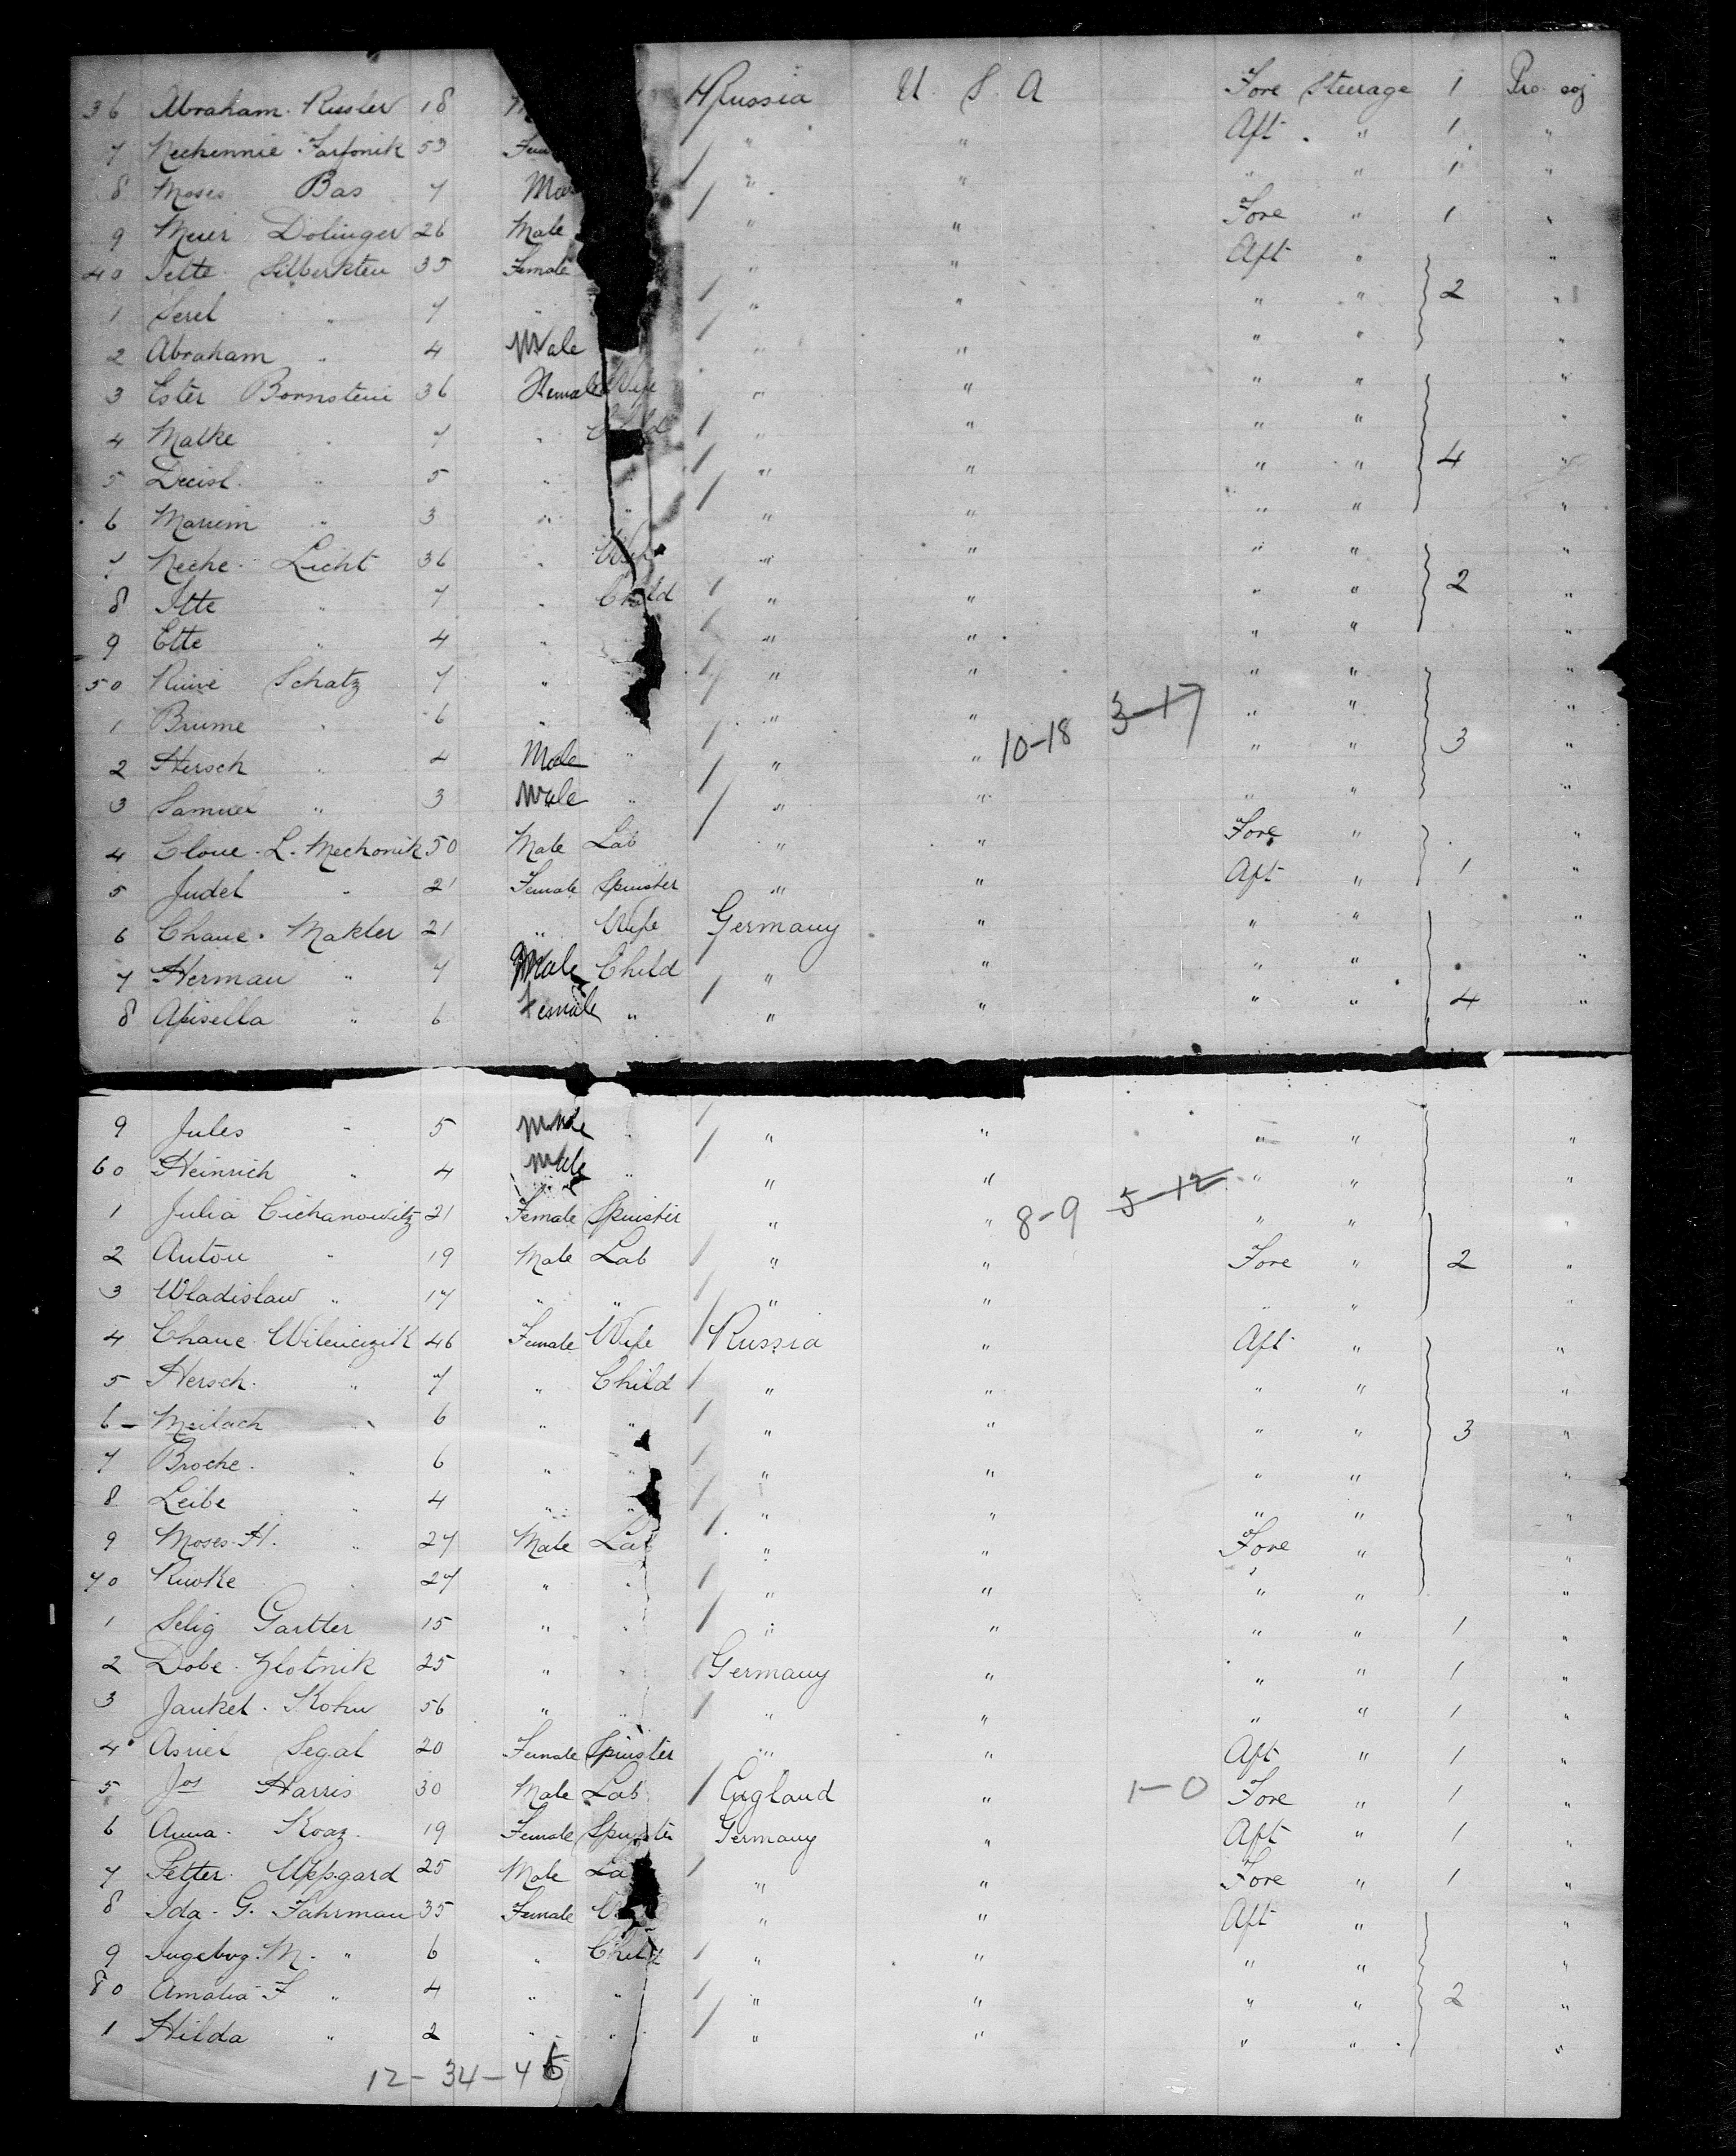 36 Abraham Rissler 18 Russia U. S. A Fore Steerage 1 Pro soj
7 Nechennie Farfonik 53 Fem " " Aft " 1 "
8 Moses Bas 7 Ma / " " " " 1 "
9 Meier Dolinger 26 Male / " " Fore " 1 "
40 Tette Silberstein 35 Female " " Aft " "
1 Serel " 7 " / " " " " 2 "
2 Abraham " 4 Male / " " " " "
3 Ester Bornstein 36 Female Wife " " " " "
4 Malke " 7 " Child / " " " " "
5 " 5 " " / " " " " 4 "
6 " 3 " " / " " " " "
7 Neche Licht 36 " Wife " " " " "
8 Itte " 7 " Child / " " " " 2 "
9 Ette " 4 " / " " " " "
50 Schatz 7 " / " " " " "
1 Brume " 6 " / " " 10-18 3-17 " " "
2 Hersch " 4 Male " / " " " " 3 "
3 Samuel " 3 Male " / " " " " "
4 L. Mechonik 50 Male Lab / " " Fore " "
5 Judel " 21 Female Spinster " " Aft " 1 "
6 Chane Makler 21 " Wife Germany " " " "
7 Herman " 7 Male Child / " " " " "
8 Apisella " 6 Female " / " " " " 4 "
9 Jules " 5 Male " / " " " " "
60 Heinrich " 4 Male " / " " " " "
1 Julia Cichanowitz 21 Female Spinster " " 8-9 5-12 " " "
2 Anton " 19 Male Lab / " " Fore " 2 "
3 Wladislaw " 17 " " / " " " " "
4 Chane Wilenczik 46 Female Wife / Russia " Aft " "
5 Hersch " 7 " Child / " " " " "
6 - Meilach " 6 " " / " " " " 3 "
7 Broche " 6 " " / " " " " "
8 Leibe " 4 " " / " " " " "
9 Moses H. " 27 Male Lab / " " Fore " "
70 " 27 " " / " " " " "
1 Selig Gartler 15 " " / " " " " 1 "
2 Dobe Zlotnik 25 " " / Germany " " " 1 "
3 Jankel Kohn 56 " " / " " " " 1 "
4 Asriel Segal 20 Female Spinster " " Aft " 1 "
5 Jos Harris 30 Male Lab / England " 1-0 Fore " 1 "
6 Anna 19 Female Spinster Germany " Aft " 1 "
7 Petter Uppgard 25 Male La / " " Fore " 1 "
8 Ida G. Fahrman 35 Female " " Aft " "
9 Ingeborg M. " 6 " Child / " " " " "
80 Amalia F " 4 " " / " " " " 2 "
1 Hilda " 2 " " / " " " " "
12-34-45